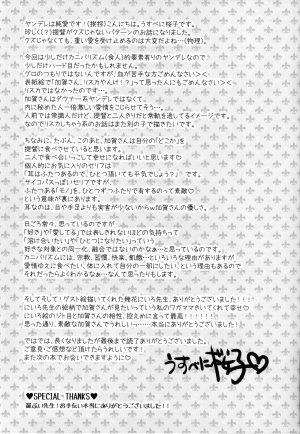 ヤンデレは純愛です！(挨拶)こんにちは。うすべに桜子です。
珍しく(？)提督がクズじゃないパターンのお話になりました。
クズじゃなくても、重い愛を受け止めるのは大変だよね…(物理)。
今回は少しだけカニバリズム(食人)的要素有りのヤンデレなので
少しだけハード目だったかもしれません。
グロのつもりではないんですが、血が苦手な方ごめんなさい><
表紙絵で「加賀さん、リスカやんけ！？」と思った人にもごめんなさい><
リスカではなかったのです…。
加賀さんはダウナー系ヤンデレではなくて
内に秘めた人一倍激しい愛情をこじらせてそう…。
人前では常識人だけど、提督と二人きりだと常軌を逸してるイメージです。
なのでリスカしちゃう系のお話はまた別の子で描きたいです。
ちなみに、たぶん、このあと、加賀さんは自分の「どこか」を
提督に食べさせていると思います。
二人で食べ合いっこして幸せになればいいと思います♡
個人的にお気に入りのセリフは
「耳はふたつあるので、ひとつ頂いても平気でしょう？」です。
サイコパスっぽいセリフですが、
ふたつある「モノ」を、ひとつずつふたりで有するのって素敵♡
という意味が裏にあります。
耳なのは、目や手足よりも実害が少ないからw加賀さんの優しさ。
日ごろ常々、思っているのですが
「好き」や「愛してる」では表しきれないほどの気持ちって
「溶け合いたい」や「ひとつになりたい」っていう
好きな対象との同一化、融合ではないのかなぁ…と思っているのです。
カニバリズムには、宗教、習慣、快楽、飢餓…といろいろな理由がありますが
愛情ゆえに食べたい、体に入れて自分の一部にしたい、という理由もあるので
それだったらわかるなぁ…なんて思ったりもします。
そしてそして！ゲスト絵描いてくれた
にいろ先生の絵柄で加賀さんが見たいっていう私のワガママきいてくれて幸せ♡
にいろ絵のジト目と加賀さんの相性、控えめに言って最高！！！！！！
思った通り、素敵な加賀さんでうれしいっ…本当にありがとうございます！
ではでは、長くなりましたが最後まで読んで頂きありがとうございました！
ご意見・ご感想など頂けたらうれしいです！
また次の本でお会いできますように♡
うすべに桜子♡
♥SPECIAL・THANKS♥
先生！お手伝い本当にありがとうございました！！